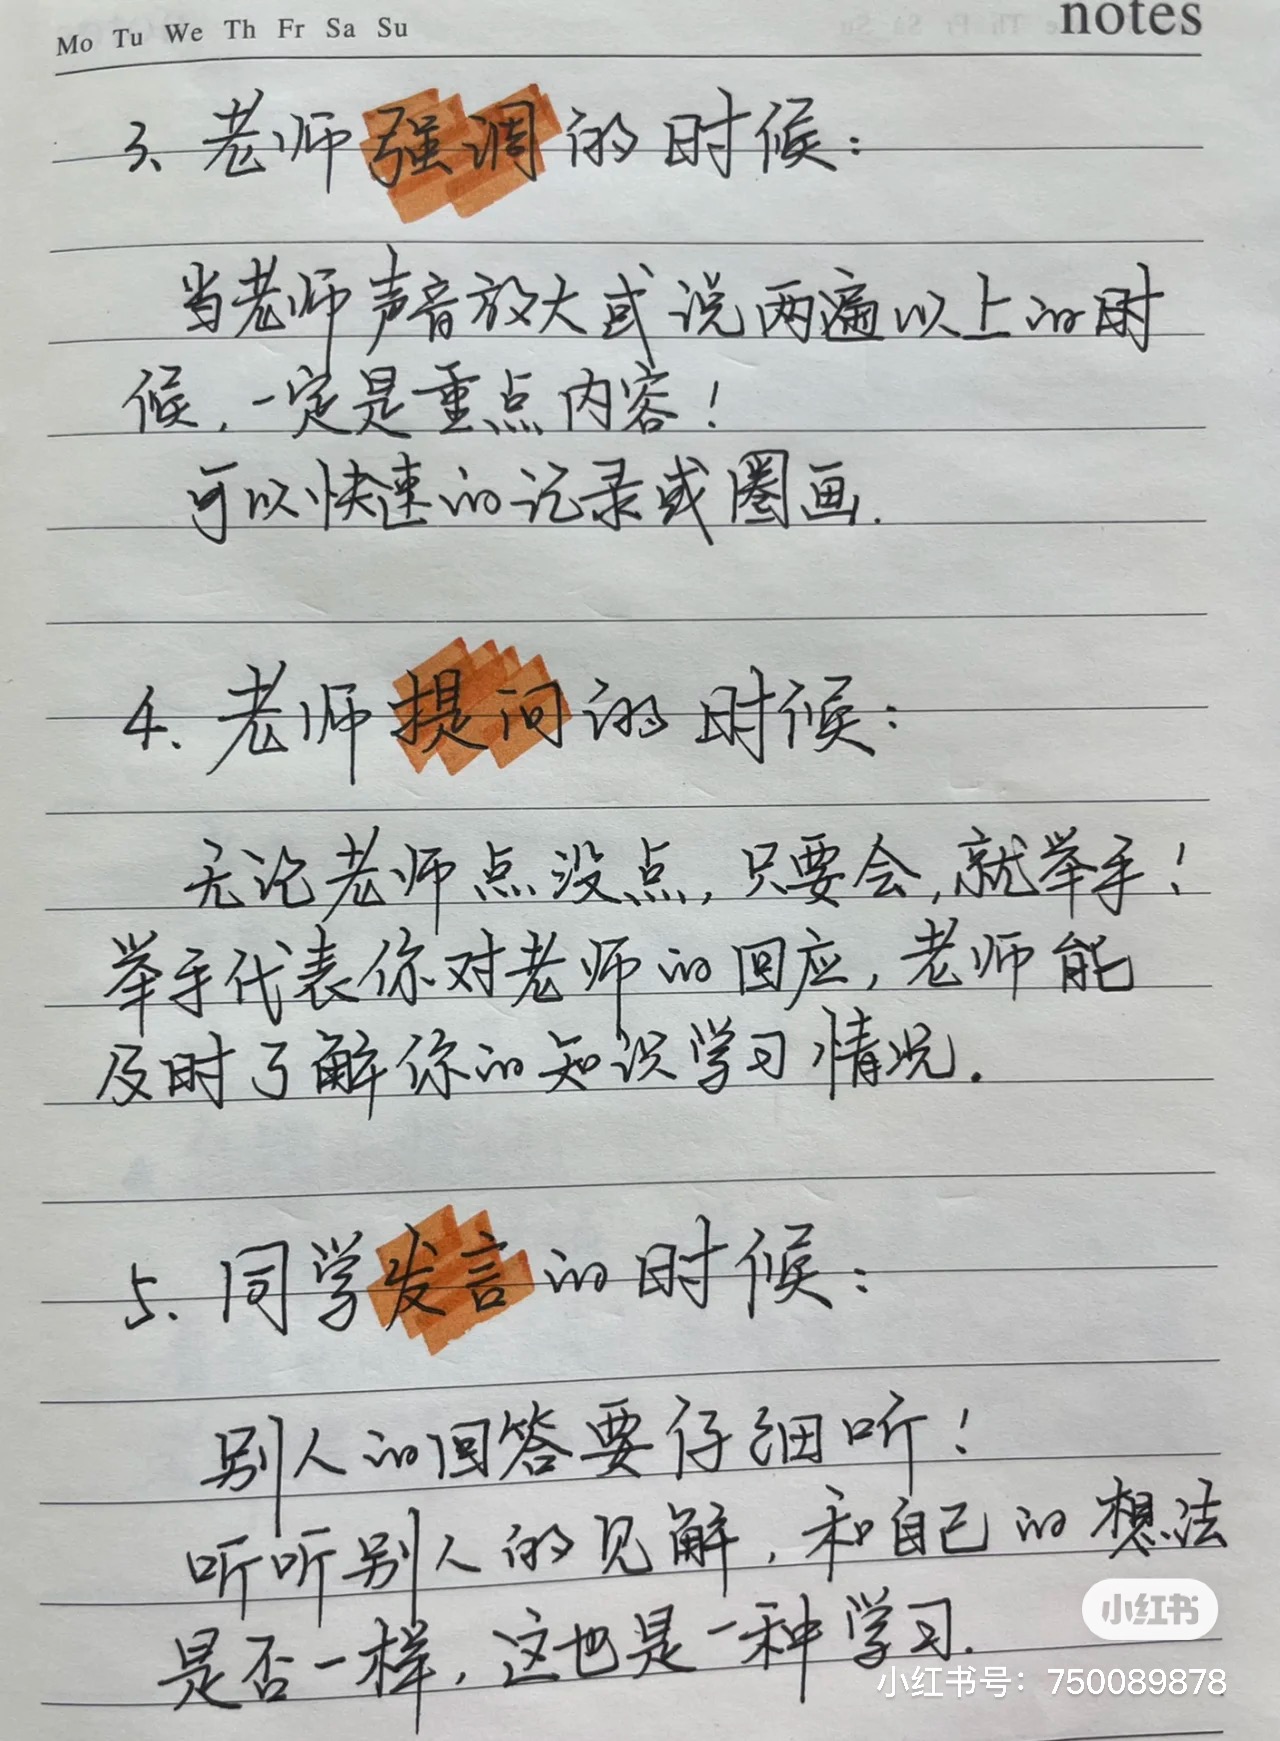 Mo Tu We Th Fr Sa Su
notes
3、老师强调的时候：
当老师声音放大或说两遍以上的时
候，一定是重点内容！
可以快速的记录或圈画.
4.老师提问的时候：
无论老师点没点，只要会，就举手！
举手代表你对老师的回应，老师能
及时了解你的知识学习情况.
5.同学发言的时候：
别人的回答要仔细听！
听听别人的见解，和自己的想法
是否一样，这也是一种学习.
小红书
小红书号：750089878